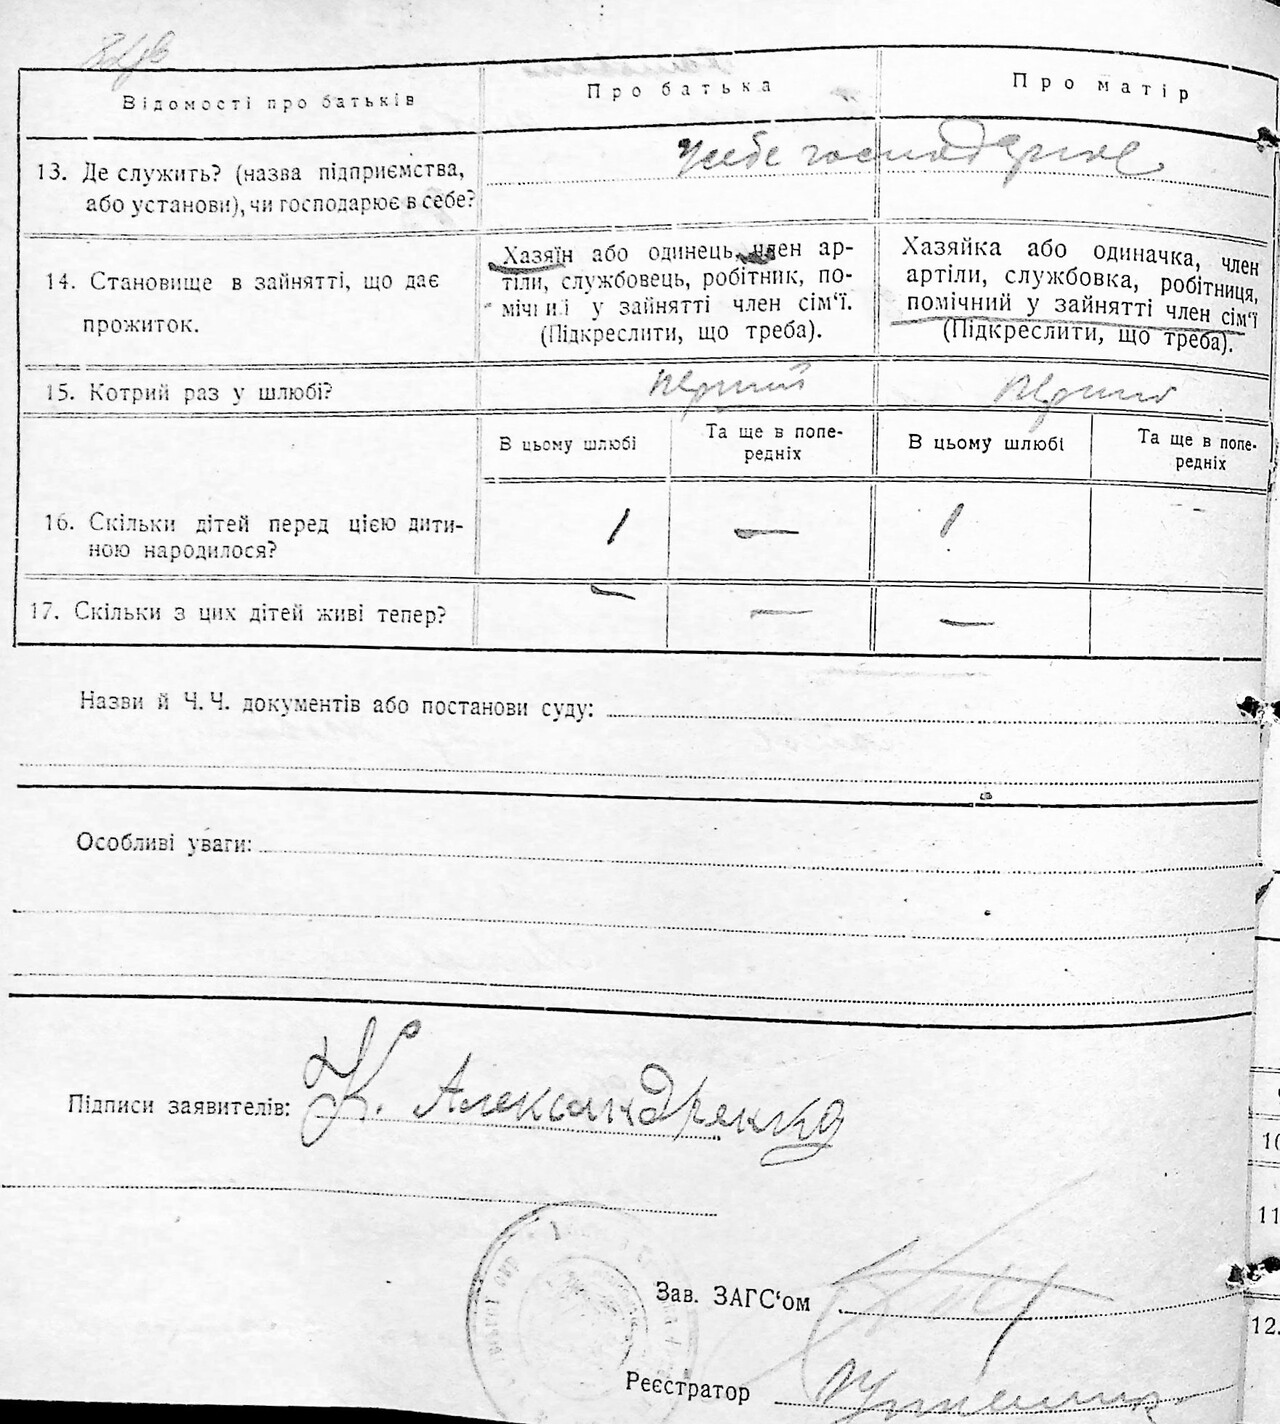 Відомості про батьків
Про батька
Про матір
13. Де служить? (назва підприємства,
або установи), чи господарює в себе?
У себе господарює
14. Становище в зайнятті, що дає
прожиток.
Хазяїн або одинець, член ар-
тіли, службовець, робітник, по-
мічний у зайнятті член сім'ї.
(Підкреслити, що треба).
Хазяйка або одиначка, член
артіли, службовка, робітниця,
помічний у зайнятті член сім'ї
(Підкреслити, що треба).
15. Котрий раз у шлюбі?
перший
перший
В цьому шлюбі
Та ще в попе-
редніх
В цьому шлюбі
Та ще в попе-
редніх
16. Скільки дітей перед цією дити-
ною народилося?
1 — 1
17. Скільки з цих дітей живі тепер?
— — —
Назви й Ч. Ч. документів або постанови суду:
Особливі уваги:
Підписи заявителів: К. Александренко
Зав. ЗАГС'ом
Реєстратор
10
11
12.